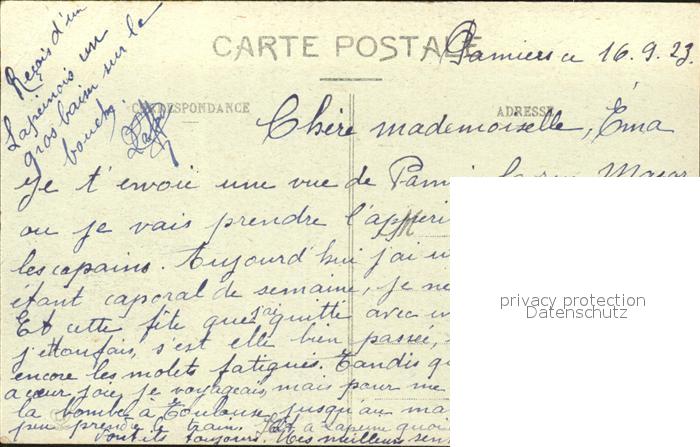 CARTE POSTALE
Pamiers ce 16.9.23
CORRESPONDANCE
ADRESSE
Reçois d'un
Lapeinois un
gros baiser sur la
bouche.
Chère mademoiselle, Ema
Je t'envoie une vue de Pami la rue Major
ou je vais prendre l'apperi
les copains. Aujourd'hui j'ai
étant caporal de semaine, je ne
Et cette fête que j'ai quitté avec
j'ettoufais, s'est elle bien passée,
encore les molets fatigués. Tandis qu
a cœur joie, je voyageais, mais pour me
la bombe à Toulouse jusqu'au ma
peu prendre le train. à Lapeine quoi
toujours. Mes meilleurs sen
privacy protection
Datenschutz